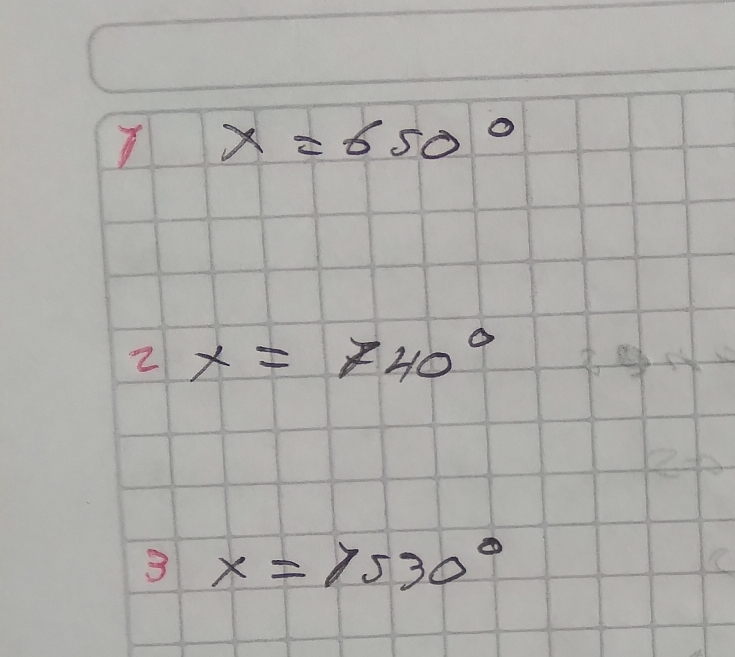 1 x = 650°
2 x = 740°
3 x = 1530°